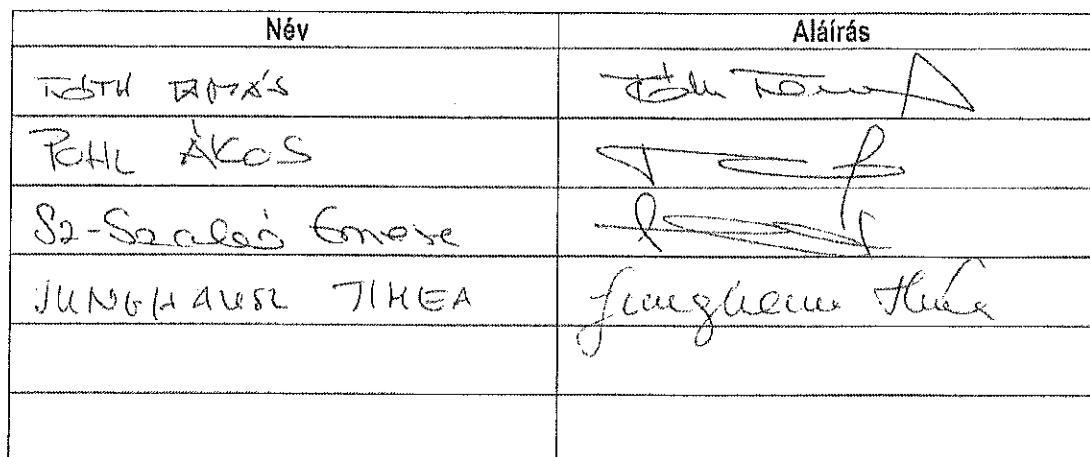 Név Aláírás
TÓTH TAMÁS Tóth Tamás
POHL ÁKOS
Sz-Szabó Emese
JUNGHAUSZ TIMEA